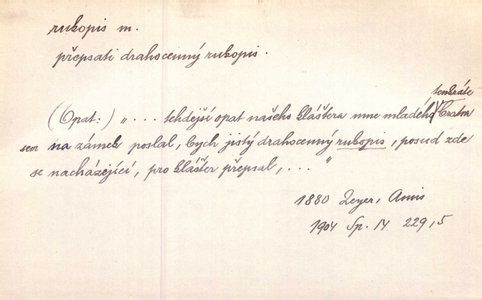 rukopis m.
přepsati drahocenný rukopis.
tenkráte
(Opat:) „... tehdejší opat našeho kláštera mne mladého
sem na zámek poslal, bych jistý drahocenný rukopis, posud zde
se nacházející, pro klášter přepsal,..."
1880 Zeyer, Amis
1904 Sp. 14 229,5